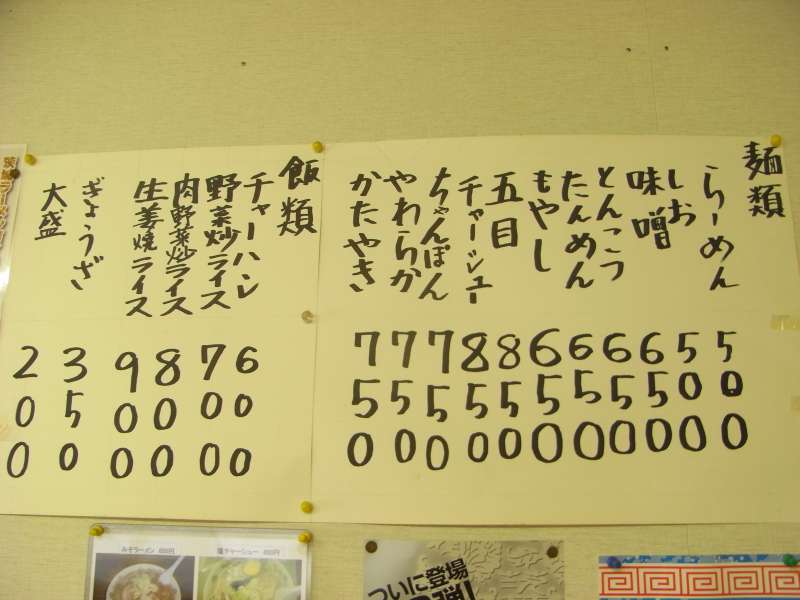 麺類
らーめん 500
しお 500
味噌 650
とんこつ 650
たんめん 650
もやし 650
五目 850
チャーシュー 850
ちゃんぽん 750
やわらか 750
かたやき 750
飯類
チャーハン 600
野菜炒ライス 700
肉野菜炒ライス 800
生姜焼ライス 900
ぎょうざ 350
大盛 200
みそラーメン
ついに登場